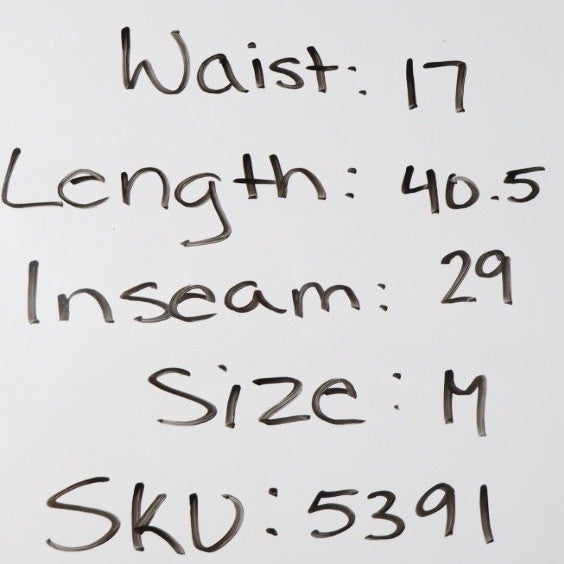 Waist: 17
Length: 40.5
Inseam: 29
Size: M
SKU: 5391